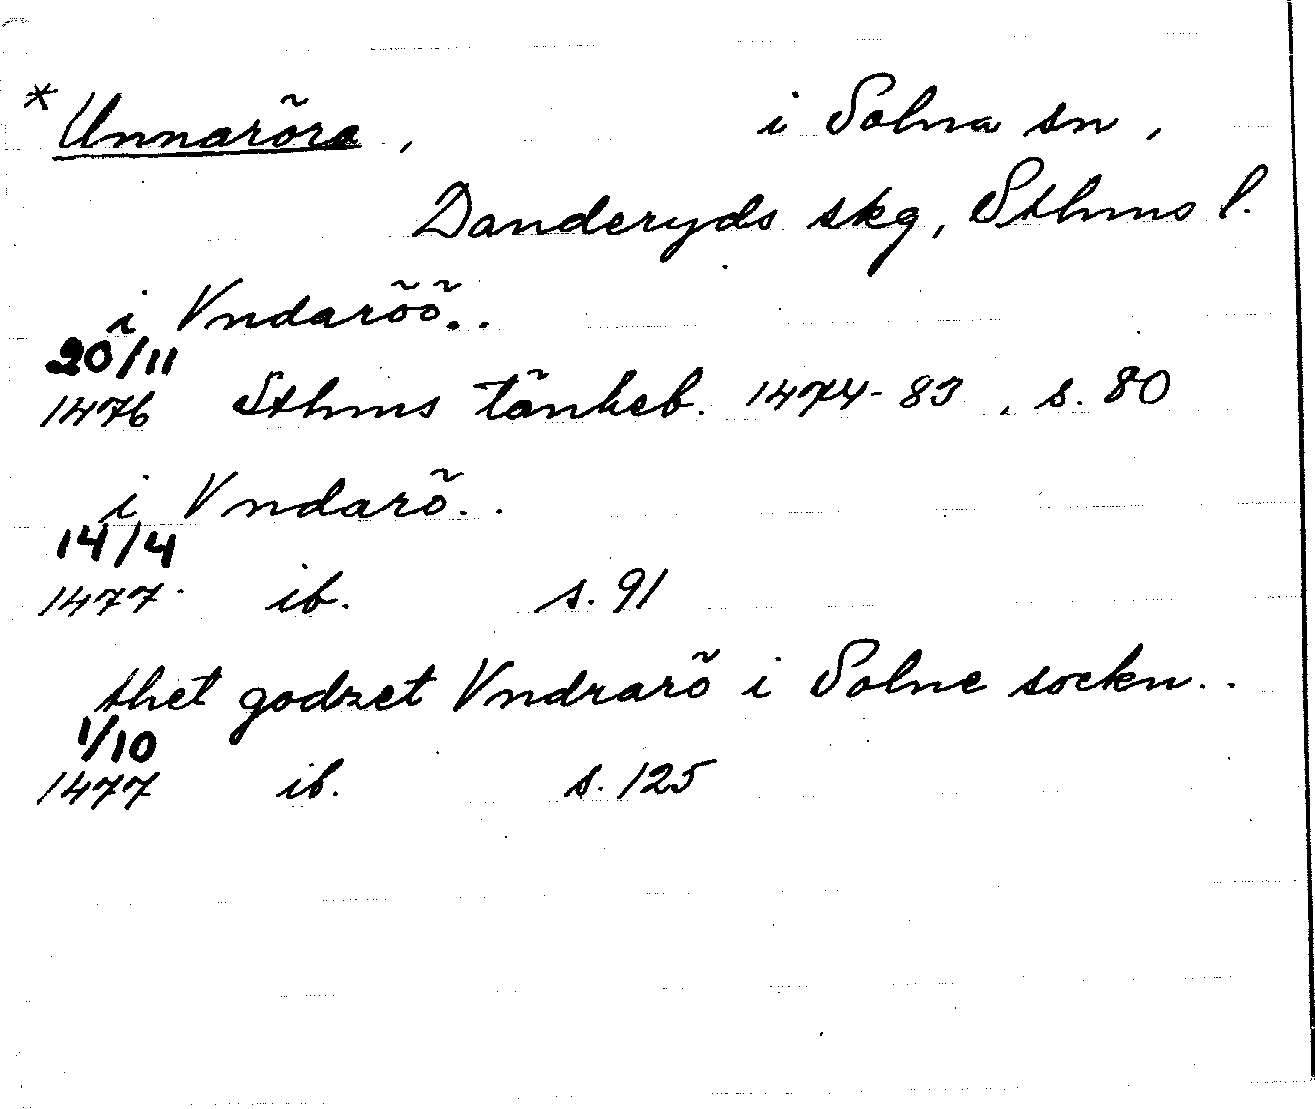 * Unnaröra, i Solna sn,
Danderyds skg, Sthms l.
i Vndaröö..
20/11
1476 Sthms tänkeb. 1474-83, s. 80
i Vndarö..
14/4
1477 ib. s. 91
thet godzet Vndrarö i Solne sockn..
1/10
1477 ib. s. 125